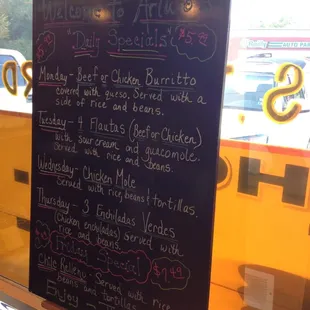 Welcome to Arlu
Daily Specials $5.95
Monday - Beef or Chicken Burritto
covered with queso. Served with a
side of rice and beans.
Tuesday - 4 Flautas (Beef or Chicken)
with sour cream and guacomole.
Served with rice and beans.
Wednesday - Chicken Mole
Served with rice, beans & tortillas.
Thursday - 3 Enchiladas Verdes
(Chicken enchiladas) Served with
rice and beans.
Friday Special $7.49
Chile Relleno - Served with rice
beans and tortillas
Enjoy
AUTO PARTS